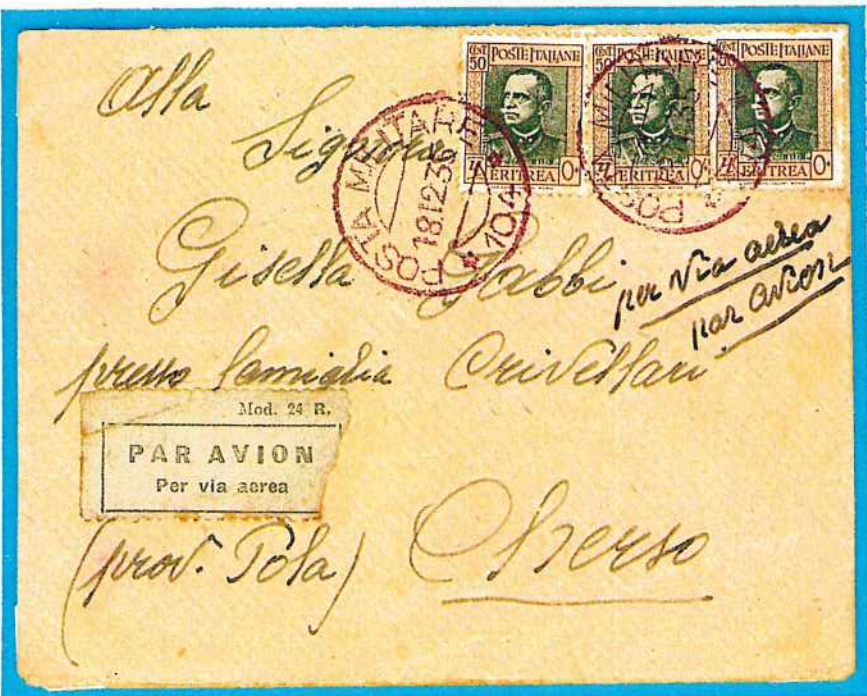 CENT 50 POSTE ITALIANE
ERITREA
CENT 50 POSTE ITALIANE
ERITREA
CENT 50 POSTE ITALIANE
ERITREA
POSTA MILITARE
18.12.35
104
Alla
Signora
Gisella Gabbi
per via aerea
par avion
presso famiglia Crivellari
Mod. 24 R.
PAR AVION
Per via aerea
(prov. Pola) Cherso